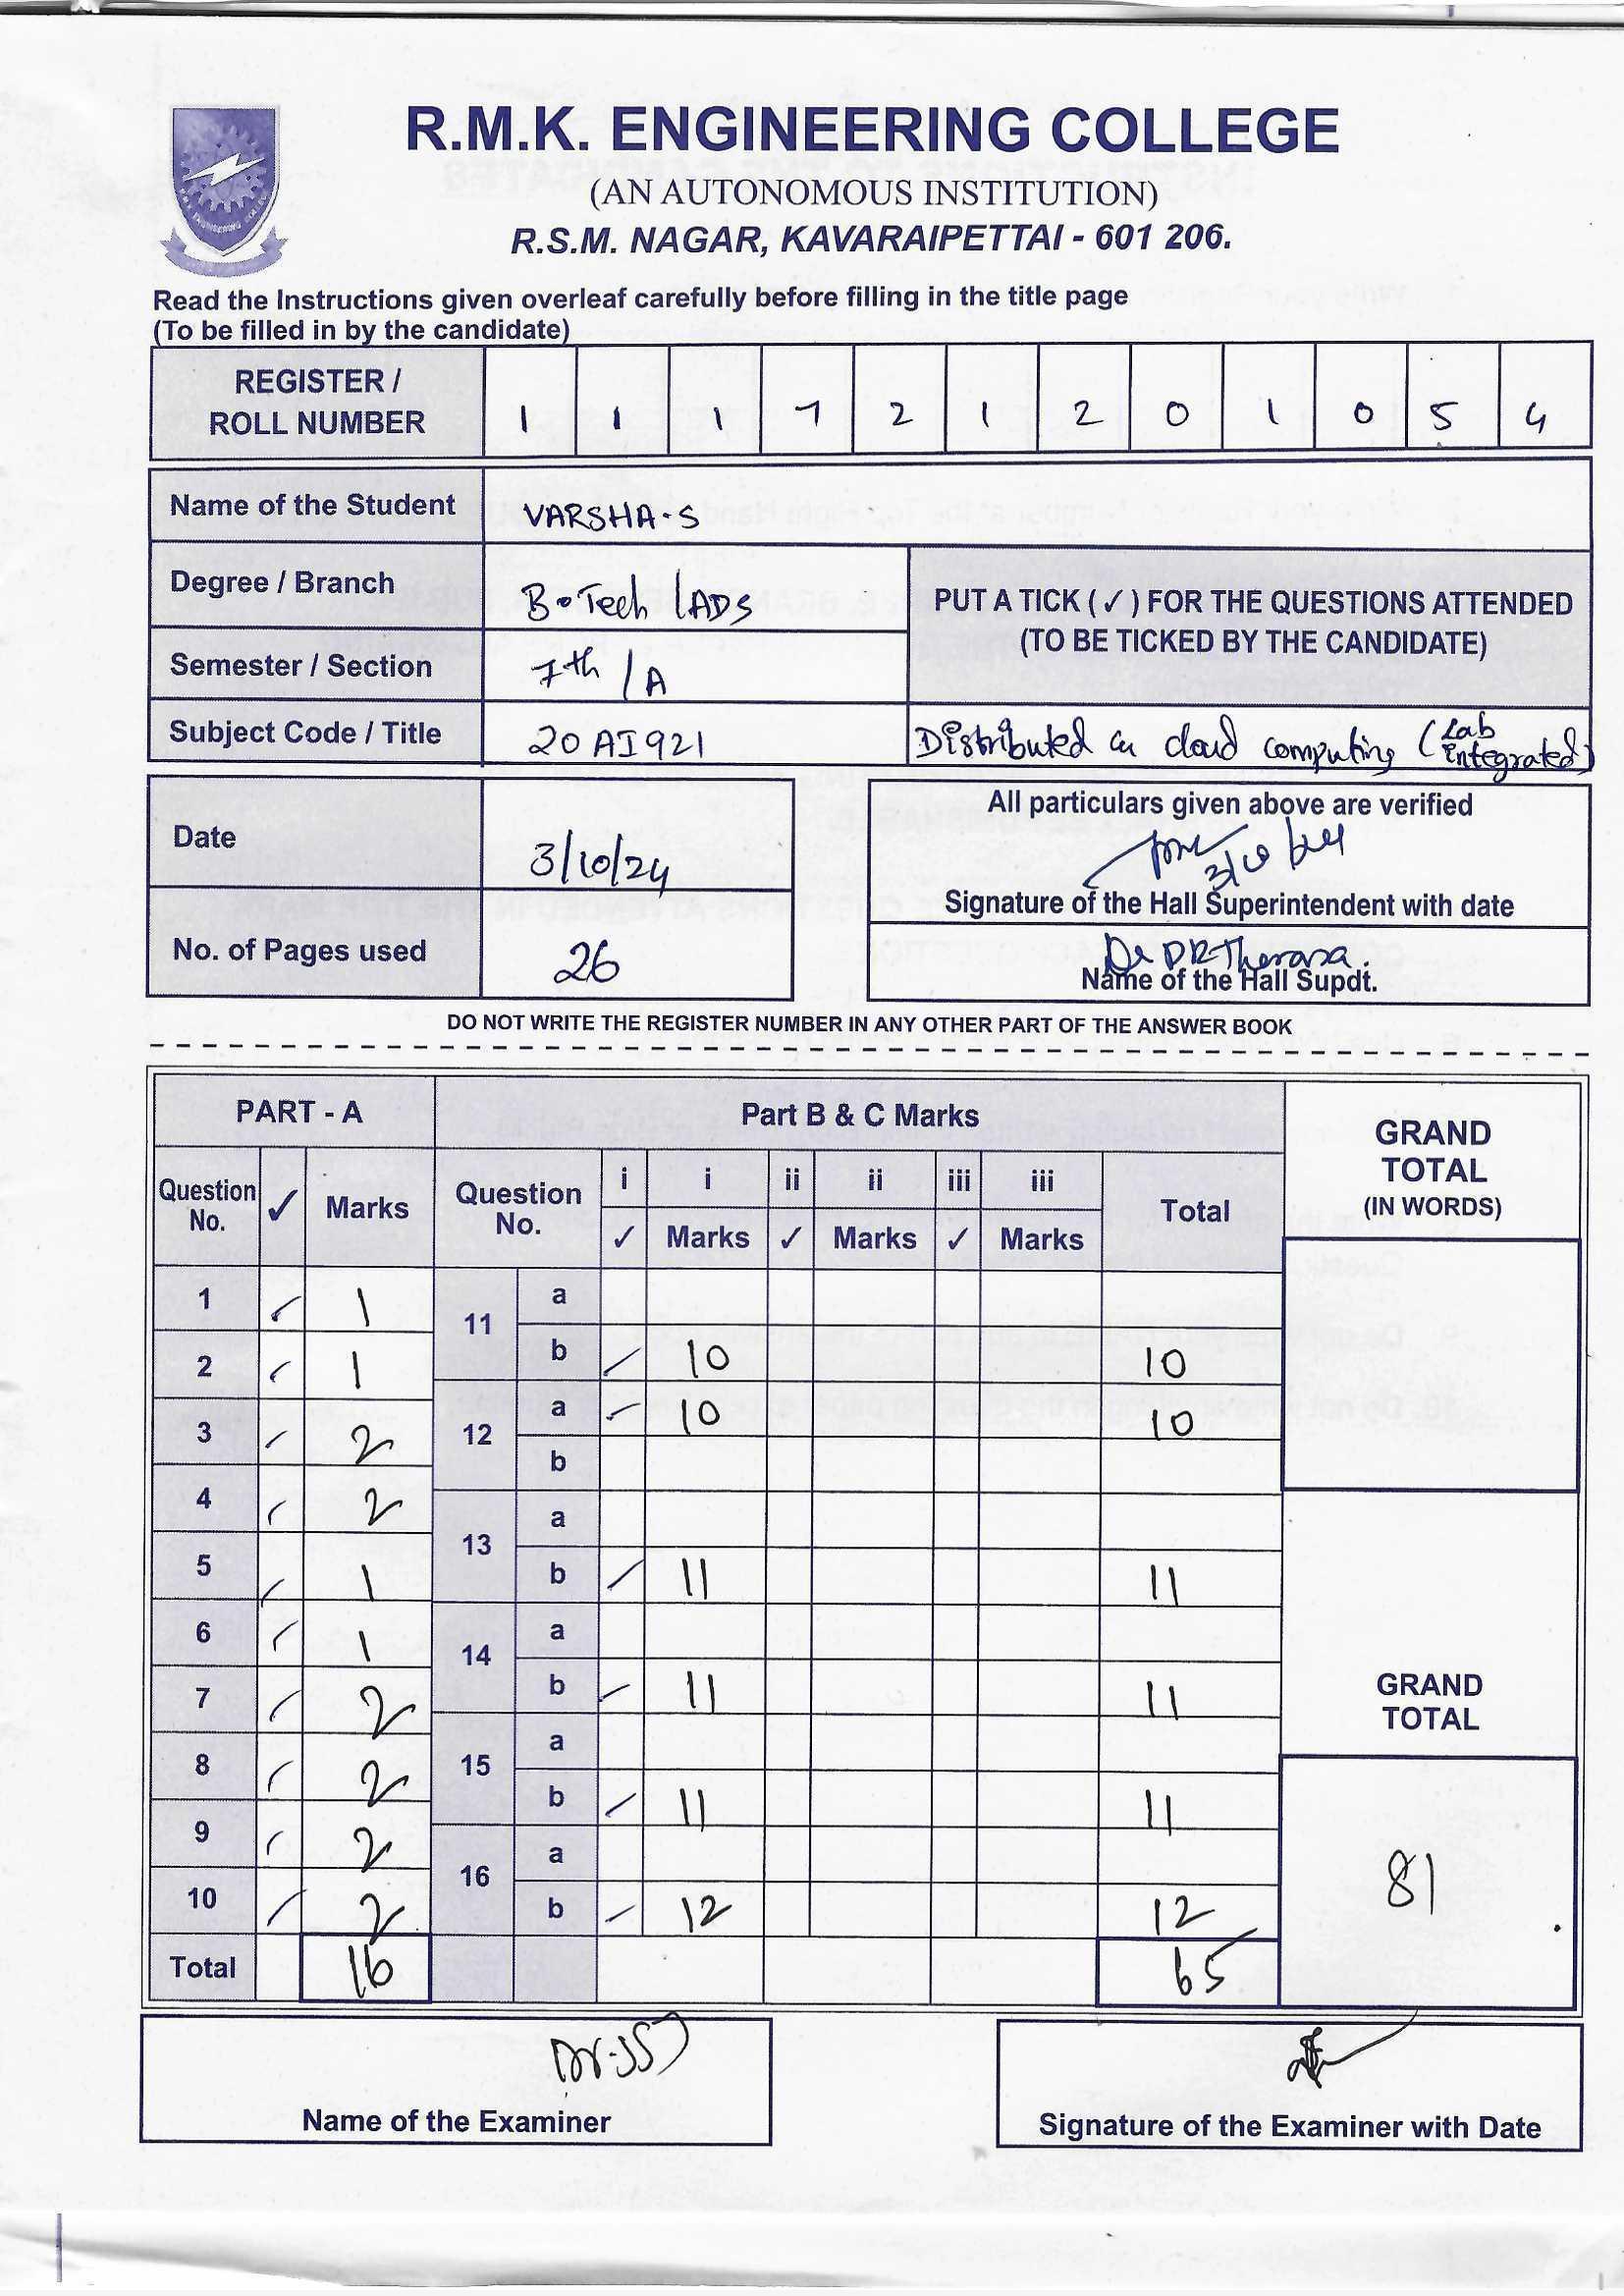 R.M.K. ENGINEERING COLLEGE
(AN AUTONOMOUS INSTITUTION)
R.S.M. NAGAR, KAVARAIPETTAI - 601 206.
Read the Instructions given overleaf carefully before filling in the title page
(To be filled in by the candidate)
REGISTER / ROLL NUMBER 1 1 1 7 2 1 2 0 1 0 5 4
Name of the Student VARSHA.S
Degree / Branch B.Tech / ADS
PUT A TICK (✓) FOR THE QUESTIONS ATTENDED
(TO BE TICKED BY THE CANDIDATE)
Semester / Section 7th / A
Subject Code / Title 20AI921 Distributed cloud computing (Lab Integrated)
Date 3/10/24
All particulars given above are verified
3/10
Signature of the Hall Superintendent with date
No. of Pages used 26
Name of the Hall Supdt.
DO NOT WRITE THE REGISTER NUMBER IN ANY OTHER PART OF THE ANSWER BOOK
PART - A Part B & C Marks GRAND TOTAL (IN WORDS)
Question No. ✓ Marks Question No. i ✓ i Marks ii ✓ ii Marks iii ✓ iii Marks Total
1 ✓ 1 11 a
2 ✓ 1 b ✓ 10 10
3 ✓ 2 12 a ✓ 10 10
b
4 ✓ 2 13 a
5 ✓ 1 b ✓ 11 11
6 ✓ 1 14 a
7 ✓ 2 b ✓ 11 11
GRAND TOTAL
8 ✓ 2 15 a
b ✓ 11 11
9 ✓ 2 16 a
10 ✓ 2 b ✓ 12 12
81
Total 16 65
Name of the Examiner
Signature of the Examiner with Date